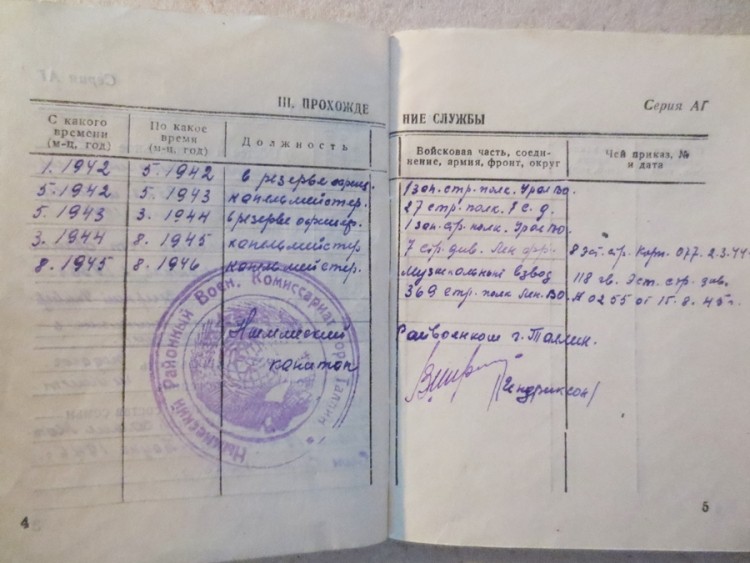 Серия АГ
III. ПРОХОЖДЕ
С какого времени (м-ц, год)
По какое время (м-ц, год)
Должность
1.1942 5.1942 в резерве офиц.
5.1942 5.1943 капельмейстер.
5.1943 3.1944 в резерве офицер.
3.1944 8.1945 капельмейстер
8.1945 8.1946 капельмейстер.
Ныммеский Районный Воен. Комиссариат гор. Таллин
Ныммеский
капитан
4
Серия АГ
НИЕ СЛУЖБЫ
Войсковая часть, соеди-
нение, армия, фронт, округ
Чей приказ, №
и дата
1 зап. стр. полк. УралВо.
27 стр. полк. 7 с. д.
1 зап. стр. полк. УралВо.
7 стр. див. Лен фр. 8 Эст. стр. Корп. 077. 2.3.44.
музыкальный взвод 118 гв. Эст. стр. див.
369 стр. полк Лен. ВО. № 0255 от 15.8.45г.
Райвоенком г. Таллин.
(Гендриксон)
5